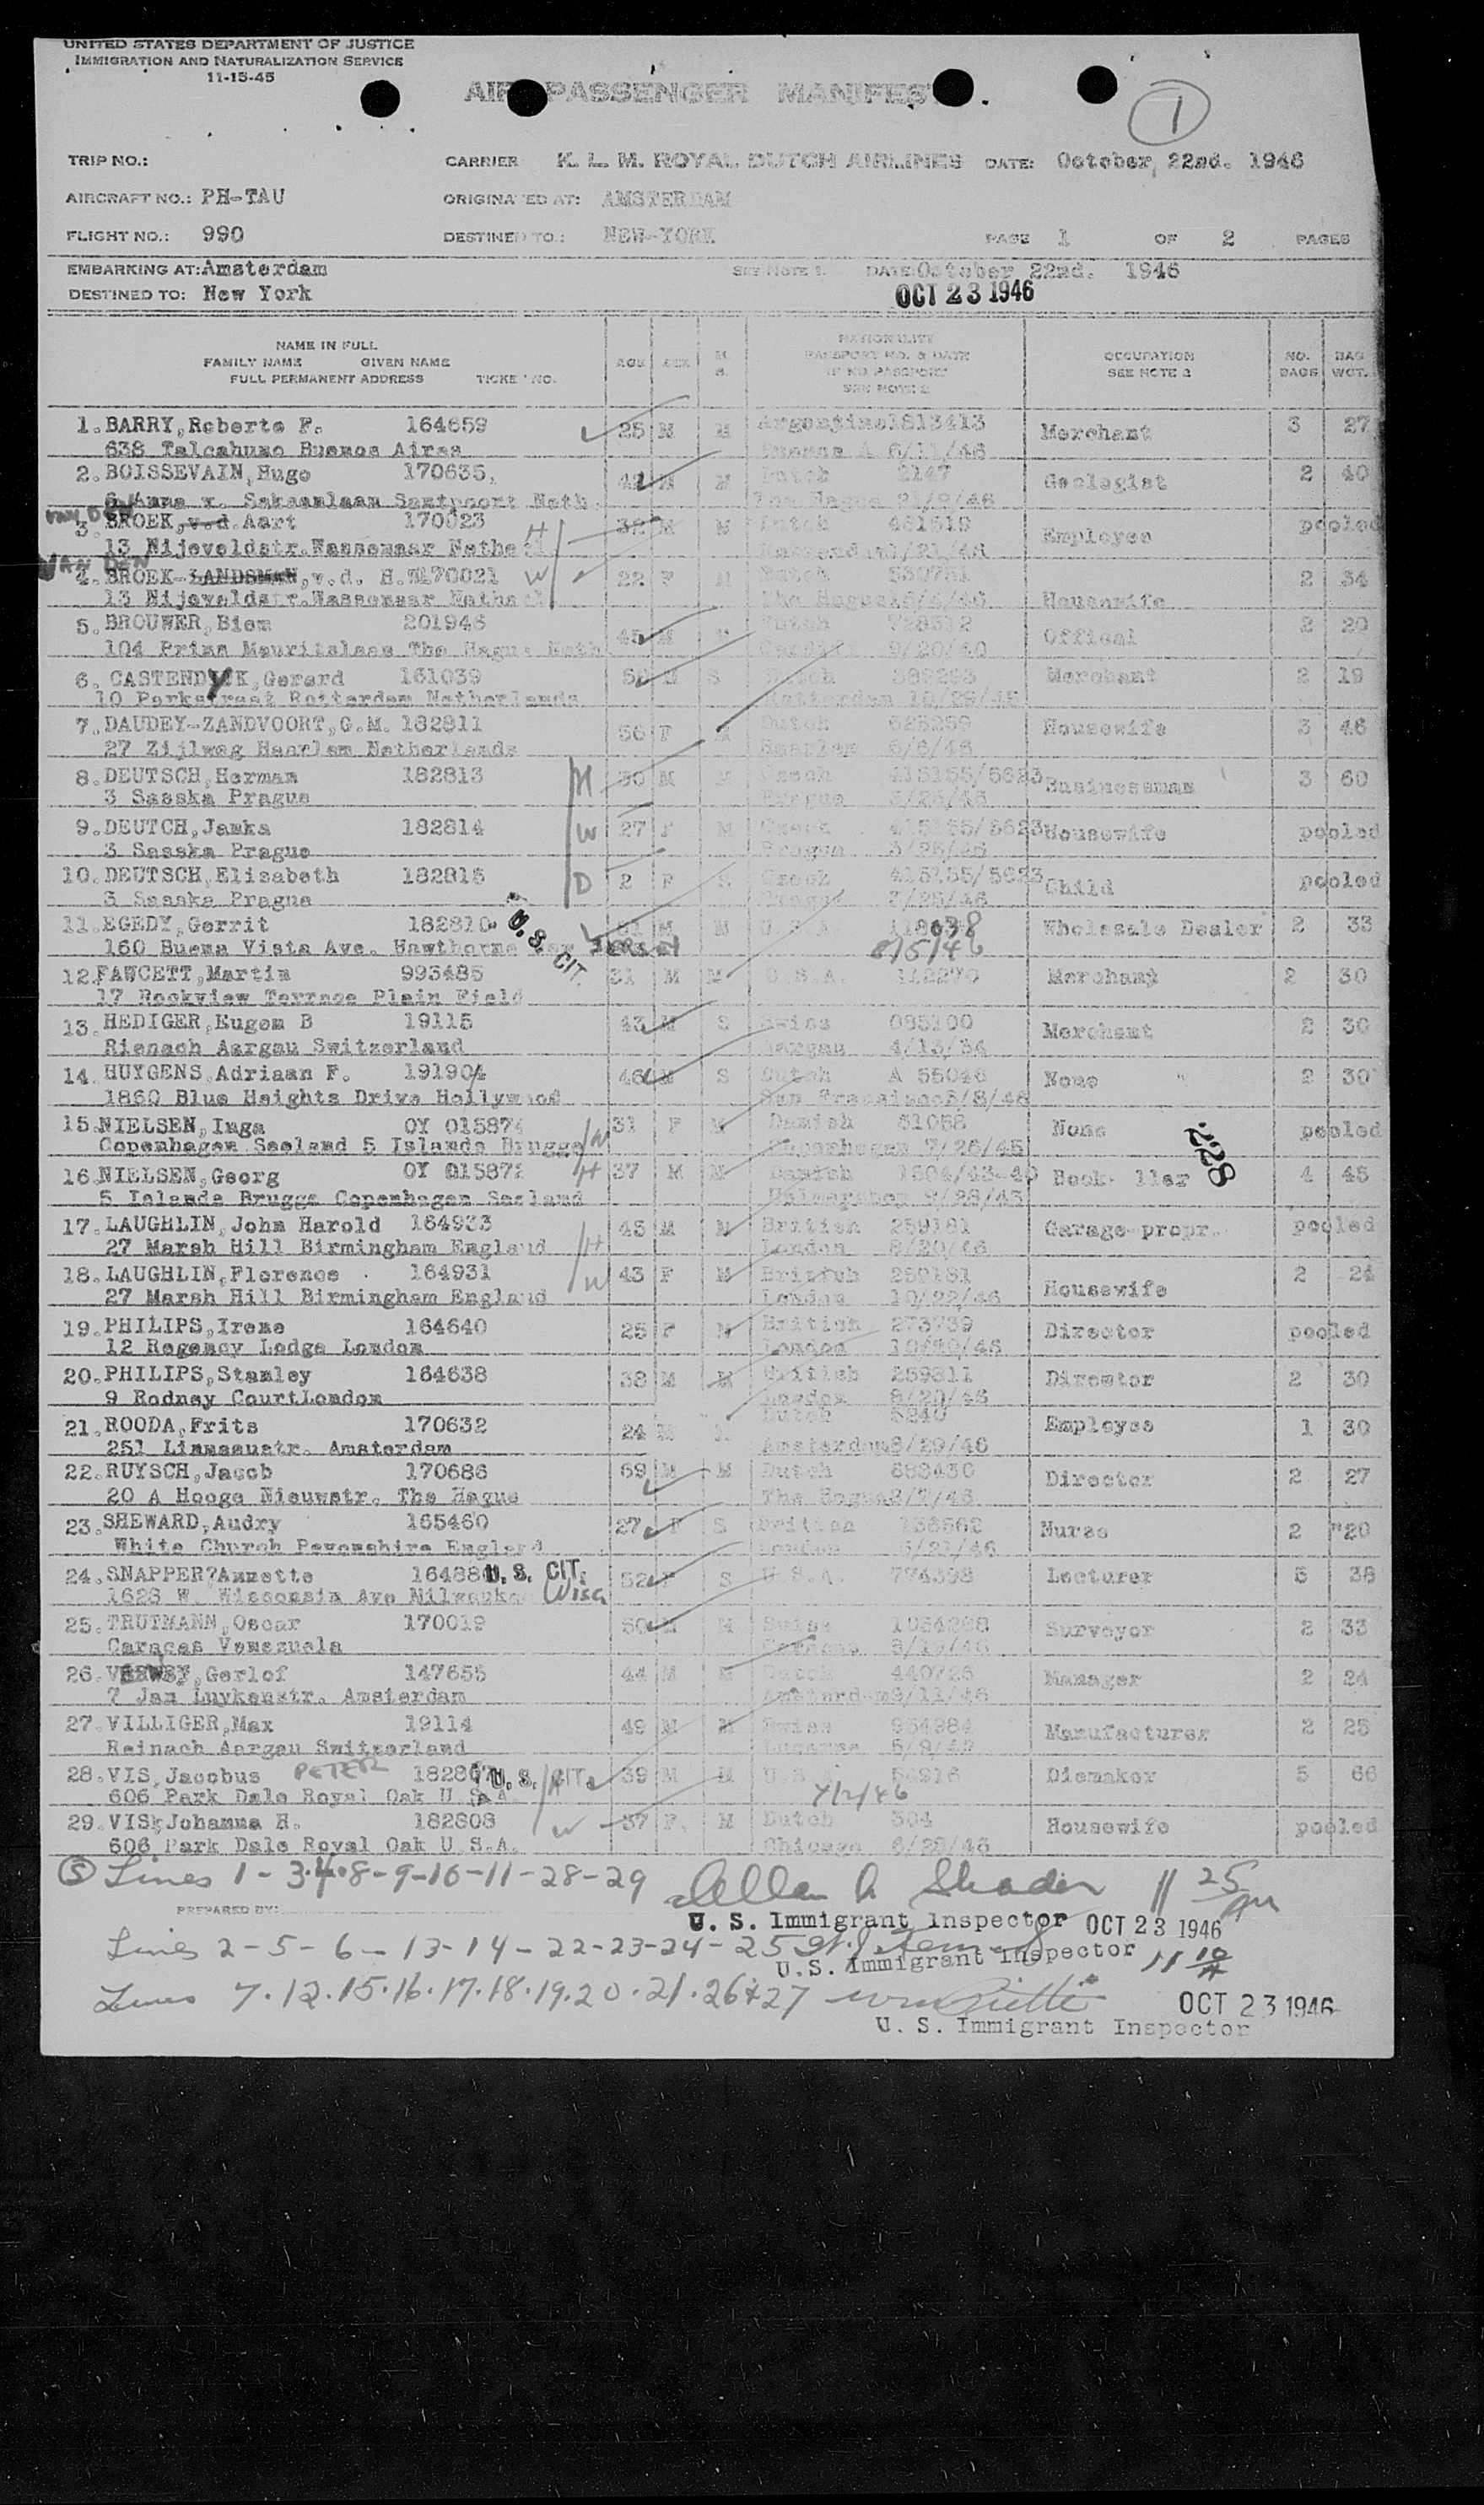 UNITED STATES DEPARTMENT OF JUSTICE
IMMIGRATION AND NATURALIZATION SERVICE
11-15-45
AIR PASSENGER MANIFEST
1
TRIP NO.: CARRIER K. L. M. ROYAL DUTCH AIRLINES DATE: October, 22nd. 1946
AIRCRAFT NO.: PH-TAU ORIGINATED AT: AMSTERDAM
FLIGHT NO.: 990 DESTINED TO.: NEW-YORK PAGE 1 OF 2 PAGES
EMBARKING AT: Amsterdam SEE NOTE 1. DATE October 22nd. 1946
DESTINED TO: New York OCT 23 1946
NAME IN FULL
FAMILY NAME GIVEN NAME
FULL PERMANENT ADDRESS TICKET NO. AGE SEX NATIONALITY PASSPORT NO. & DATE IF NO PASSPORT SEE NOTE 2 OCCUPATION SEE NOTE 2 NO. BAGS BAG WGT.
1. BARRY, Roberto F. 164659 25 M M Argentine 1813413 Merchant 3 27
638 Talcahuno Buenos Aires 6/11/46
2. BOISSEVAIN, Hugo 170635, M M Dutch 2147 Geologist 2 40
Santpoort Neth. The Hague
VAN DEN
3. BROEK, v.d. Aart 170023 H M M Dutch 481519 Employee pooled
13 Nijeveldstr. Wassenaar Nethe
VAN DEN
4. BROEK-LANDSMAN, v.d. H. 170021 W 22 F M Dutch Housewife 2 34
13 Nijeveldstr. Wassenaar The Hague
5. BROUWER, Biem 201946 45 M M Dutch Offical 2 20
104 Prins Mauritslaan The Hague Neth 9/20/40
6. CASTENDYK, Gerard 161039 M S Dutch Merchant 2 19
10 Parkstraat Rotterdam Netherlands Rotterdam 10/29/45
7. DAUDEY-ZANDVOORT, G.M. 182811 56 F M Dutch 625259 Housewife 3 46
27 Zijlweg Haarlem Netherlands Haarlem 5/6/46
8. DEUTSCH, Herman 182813 H 30 M M Czech 415155/5623 Businessman 3 60
3 Sasska Prague
9. DEUTCH, Janka 182814 W 27 F M Czech 415155/5623 Housewife pooled
3 Sasska Prague
10. DEUTSCH, Elisabeth 182815 D 2 F S Czech 415155/5623 Child pooled
3 Sasska Prague
11. EGEDY, Gerrit 182810 U.S. CIT. M M U.S.A 118038 Wholesale Dealer 2 33
160 Buena Vista Ave. Hawthorne JERSEY 8/5/46
12. FAWCETT, Martin 993485 31 M M U.S.A 112270 Merchant 2 30
17 Rockview Terrace Plain Field
13. HEDIGER, Eugen B 19115 43 M S Swiss 085100 Merchant 2 30
Rienach Aargau Switzerland Aargau 4/13/34
14. HUYGENS, Adriaan F. 191904 46 M S Dutch A 55046 None 2 30
1860 Blue Heights Drive Hollywood
15. NIELSEN, Inga OY 015874 W 31 F M Danish 51058 None pooled
Copenhagen Seeland 5 Islands Brugge Copenhagen 7/26/45
228
16. NIELSEN, Georg OY 015872 H 37 M M Danish 4 45
5 Islands Brugge Copenhagen Seeland
17. LAUGHLIN, John Harold 164933 H 45 M M British 259181 Garage propr. pooled
27 Marsh Hill Birmingham England London 8/20/46
18. LAUGHLIN, Florence 164931 W 43 F M British 259181 Housewife 2 24
27 Marsh Hill Birmingham England London 10/22/46
19. PHILIPS, Irene 164640 25 F M British 273739 Director pooled
12 Regency Lodge London London
20. PHILIPS, Stanley 164638 38 M M British 259311 Director 2 30
9 Rodney Court London London 8/20/46
21. ROODA, Frits 170632 24 Dutch 5240 Employee 1 30
251 Linnaeustr. Amsterdam Amsterdam 8/29/46
22. RUYSCH, Jacob 170686 69 M M Dutch 683430 Director 2 27
20 A Hooge Nieuwstr. The Hague The Hague
23. SHEWARD, Audry 165460 27 F S British Nurse 2 20
White Church Devonshire England London
24. SNAPPER, Annette U.S. CIT. 52 F S U.S.A. 774398 Lecturer 5 38
1628 W. Wisconsin Ave Milwaukee Wisc
25. TRUTMANN, Oscar 170019 50 M M Swiss Surveyor 2 33
Caracas Venezuela
26. Gerlof 147655 44 M M Dutch Manager 2 24
7 Jan Luykenstr. Amsterdam
27. VILLIGER, Max 19114 49 M M Swiss 954984 Manufacturer 2 25
Reinach Aargau Switzerland
28. VIS, Jacobus PETER U.S. CIT. H 39 M M U.S. 54916 Diemaker 5 66
606 Park Dale Royal Oak U S A 4/2/46
29. VIS, Johanna H. 182808 W 37 F. M Dutch 504 Housewife pooled
606 Park Dale Royal Oak U S.A. Chicago 6/28/46
(S) Lines 1-3-4-8-9-10-11-28-29 11 25/AM
PREPARED BY: U. S. Immigrant Inspector OCT 23 1946
Lines 2-5-6-13-14-22-23-24-25
U.S. Immigrant Inspector 11 10/A
Lines 7.12.15.16.17.18.19.20.21.26+27 OCT 23 1946
U. S. Immigrant Inspector